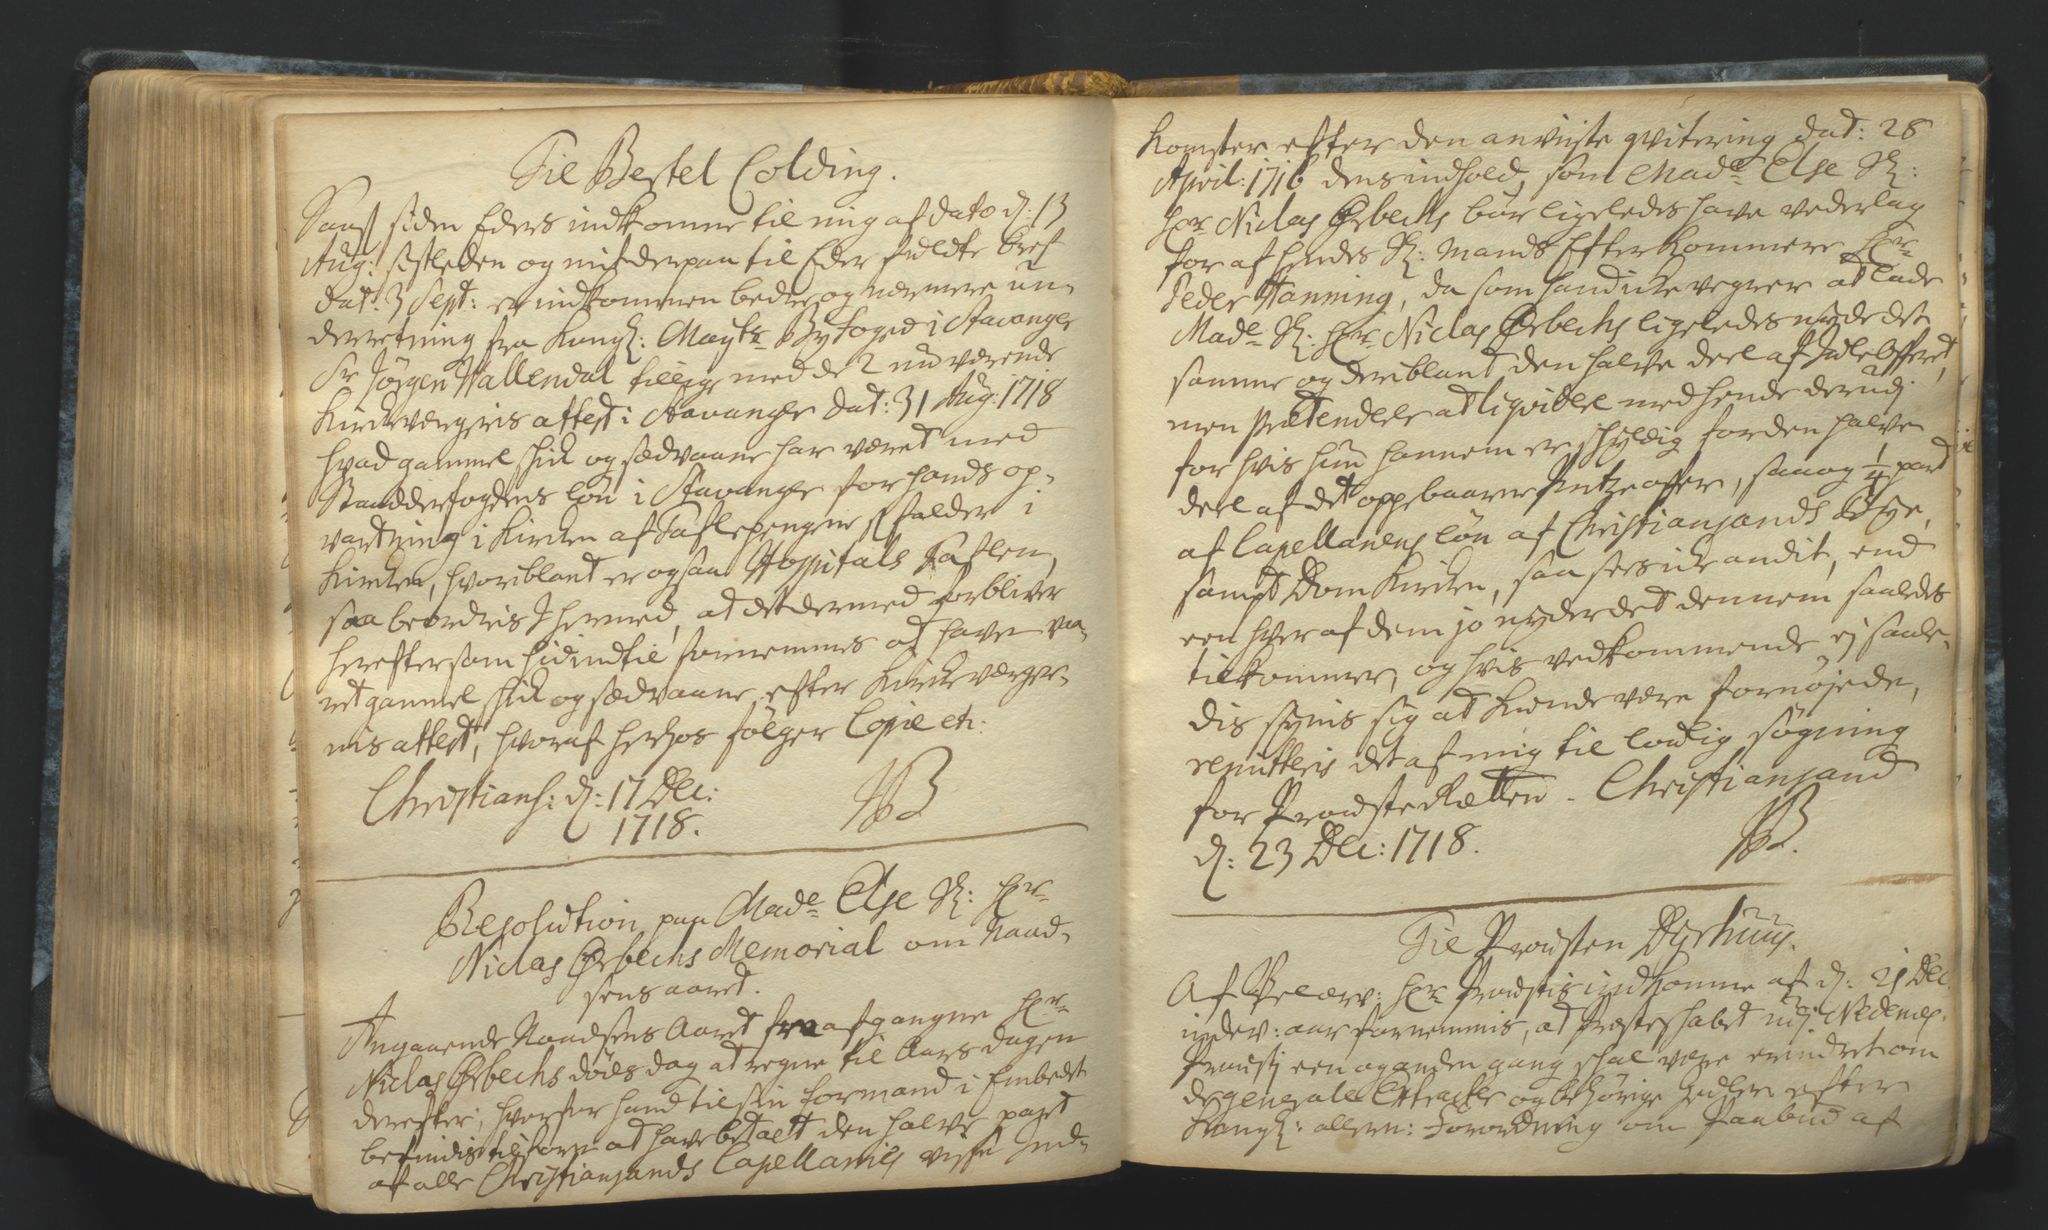 Til Bertel Colding.
Saasom siden Eders indkomne til mig af dato d: 13
Aug: sistleden og mit derpaa til Eder fuldte bref
dat: 3 Sept: er indkommen bedre og nermere un-
derretning fra Kongl: Mayts Byfoged i Stavanger
Sr Jørgen Wallendal tillige med de 2 nu værende
Kirkeværgeris attest i Stavanger dat: 31 Aug: 1718
hvad gammel skik og sædvaane har været med
Stadderfogdens løn i Stavanger for hands op-
vartning i Kirken af Taflepengene falder i
Kirken, hvoriblant er ogsaa Hospitals Taflen,
saa beordris I hermed, at det dermed forbliver
herefter som hidindtil fornemmes at have væ-
ret gammel skik og sædvaane efter Kirkeværger-
nis attest, hvoraf herhos følger Copie etc:
Christians: d: 17 Dec:
1718.
Resolution paa Made Else Sl: Hr
Niclas Ørbechs Memorial om Naad-
sens aaret.
Angaaende Naadsens Aaret fra afgangne Hr
Niclas Ørbechs døds dag at regne til Aarsdagen
derefter, hvorfor hand til sin formand i Embedet
befindis tilforn at have betalt den halve part
af alle Christiansands Capellanies visse Ind-
komster efter den anviiste qvitering dat: 28
April: 1716 dens indhold, som Made Else Sl:
Hr Niclas Ørbechs bør ligeledes have vederlag
for af hendes Sl: Mands Efterkommere Hr
Peder Wanning, da som hand icke vegrer at lade
Made Sl: Hr Niclas Ørbechs ligeledes nyde det
samme og deriblant den halve deel af Juleofferet,
men prætenderer at liqvidere med hende derudj
for hvis hun hannem er skyldig for den halve
deel af det oppebaarne offer, saa og 1/4 part
af Capellanens løn af Christiansands Bye,
sampt Dom Kirken, saa sees icke andit, end
een hver af dem jo nyder det dennem saaledes
tilkommer, og hvis vedkommende ej saale-
dis synis sig at kunde være fornøjede,
remitteris det af mig til lovlig søgning
for Provste Retten. Christiansand
d: 23 Dec: 1718.
Til Provsten Dyrhuus.
Af Velærv: Hr Provstis indkomne af d: 21 Dec.
indev: aar fornemmis, at Præsteskabet udj Nedenes
Provstj een og anden gang skal være erindret om
de generale Extracter og behørige efter
Kongl: allern: Forordning om Paabud af